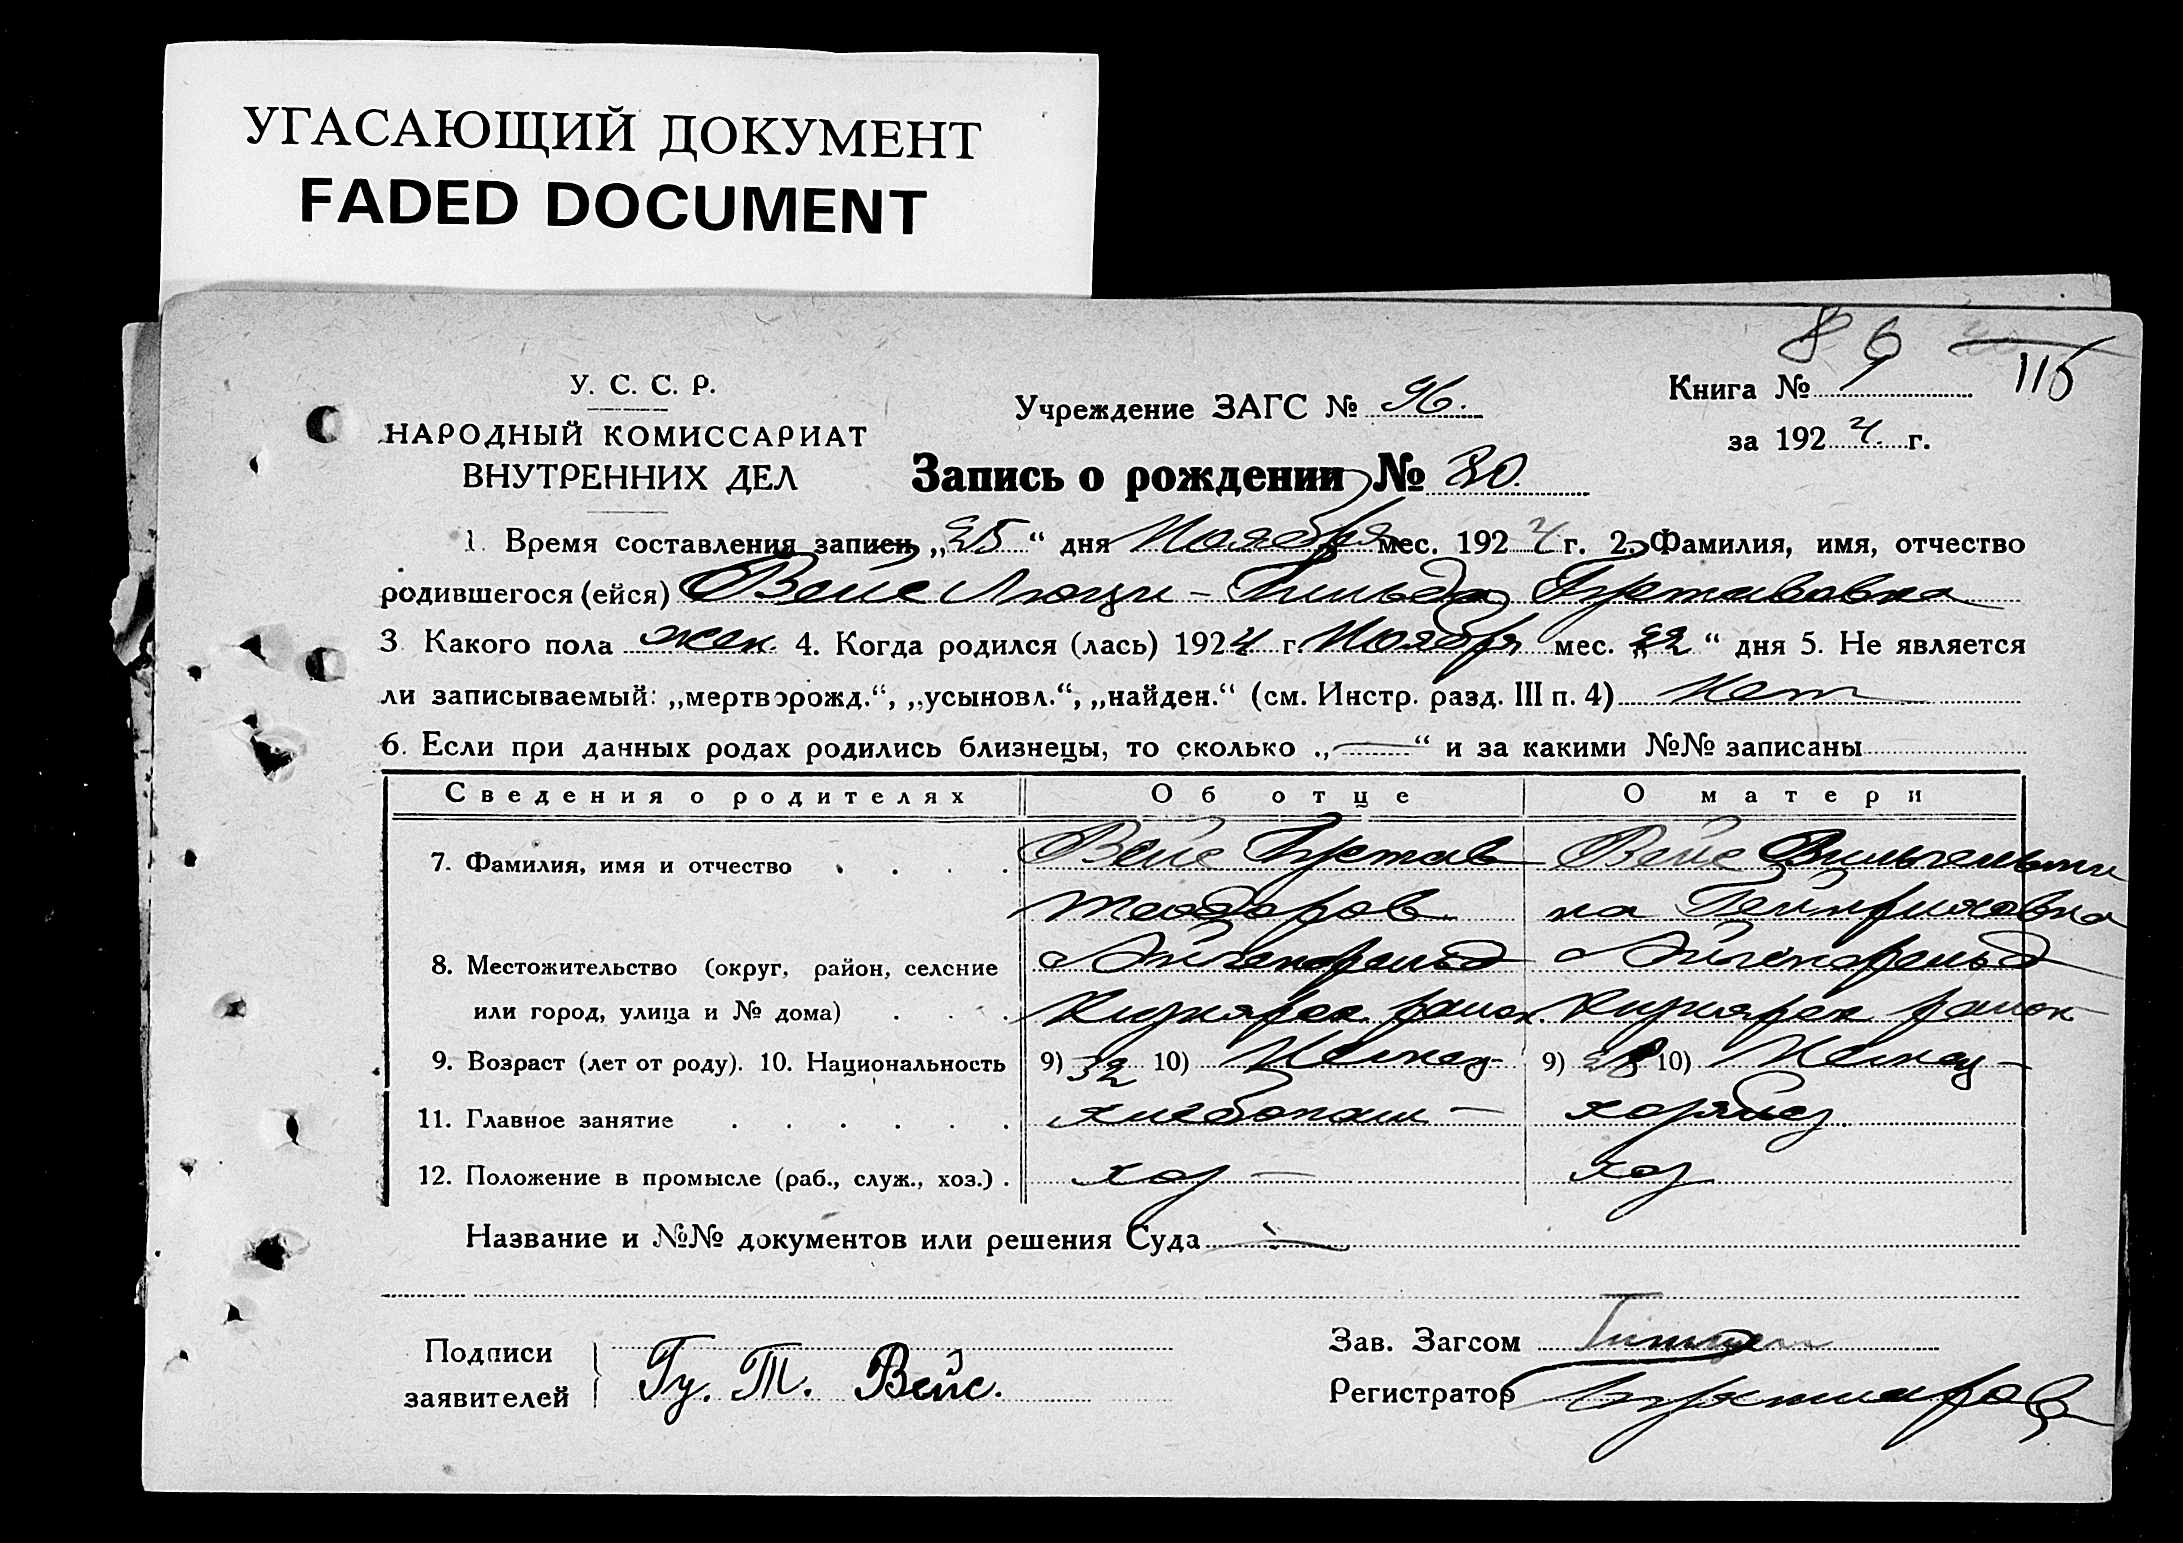 УГАСАЮЩИЙ ДОКУМЕНТ
FADED DOCUMENT
8 6
У. С. С. Р.
НАРОДНЫЙ КОМИССАРИАТ
ВНУТРЕННИХ ДЕЛ
Учреждение ЗАГС № 96.
Книга № 1
116
за 1924. г.
Запись о рождении № 80.
1. Время составления записи „25“ дня Ноября мес. 1924 г. 2. Фамилия, имя, отчество
родившегося (ейся) Вейс Люци - Гильда Густавовна
3 Какого пола жен. 4. Когда родился (лась) 1924 г. Ноября мес. „22“ дня 5. Не является
ли записываемый: „мертворожд.“, „усыновл.“, „найден.“ (см. Инстр. разд. III п. 4) Нет
6. Если при данных родах родились близнецы, то сколько „—“ и за какими №№ записаны
Сведения о родителях Об отце О матери
7. Фамилия, имя и отчество Вейс Густав Вейс Вильгельми
Теодоров на Гейнриховна
8. Местожительство (округ, район, селение Айгенфельд Айгенфельд
или город, улица и № дома) район район
9. Возраст (лет от роду). 10. Национальность 9) 32 10) Немец 9) 28 10) Немец
11. Главное занятие хлебопаш —
12. Положение в промысле (раб., служ., хоз.) хоз — хоз
Название и №№ документов или решения Суда —
Подписи
заявителей Гу. Т. Вейс.
Зав. Загсом
Регистратор